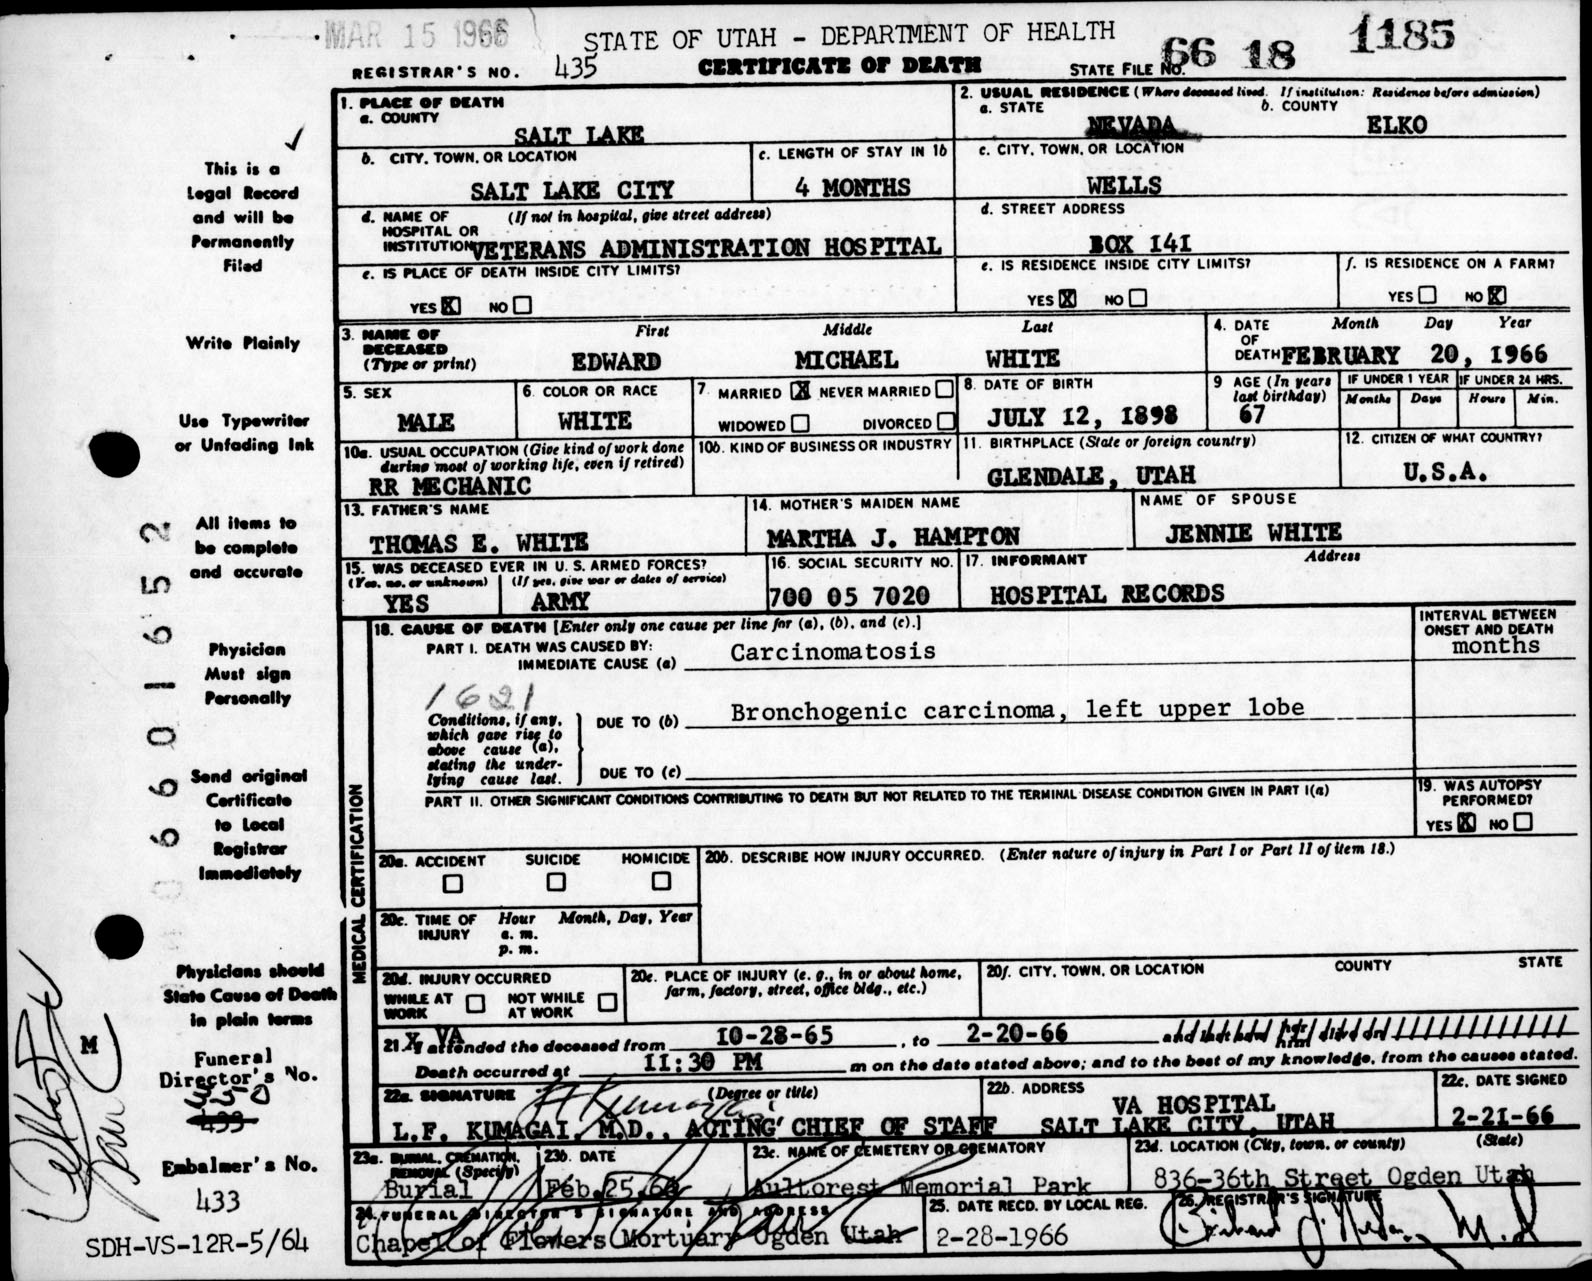 MAR 15 1966
STATE OF UTAH - DEPARTMENT OF HEALTH
REGISTRAR'S NO. 435 CERTIFICATE OF DEATH STATE FILE NO. 66 18 1185
This is a
Legal Record
and will be
Permanently
Filed
Write Plainly
Use Typewriter
or Unfading Ink
All items to
be complete
and accurate
Physician
Must sign
Personally
Send original
Certificate
to Local
Registrar
Immediately
Physicians should
State Cause of Death
in plain terms
M
Funeral
Director's No.
433
Embalmer's No.
433
SDH-VS-12R-5/64
6601652
1. PLACE OF DEATH
a. COUNTY
SALT LAKE
2. USUAL RESIDENCE (Where deceased lived. If institution: Residence before admission)
a. STATE b. COUNTY
NEVADA ELKO
b. CITY, TOWN, OR LOCATION
SALT LAKE CITY
c. LENGTH OF STAY IN 1b
4 MONTHS
c. CITY, TOWN, OR LOCATION
WELLS
d. NAME OF (If not in hospital, give street address)
HOSPITAL OR
INSTITUTION VETERANS ADMINISTRATION HOSPITAL
d. STREET ADDRESS
BOX 141
e. IS PLACE OF DEATH INSIDE CITY LIMITS?
YES X NO
e. IS RESIDENCE INSIDE CITY LIMITS?
YES X NO
f. IS RESIDENCE ON A FARM?
YES NO X
3. NAME OF First Middle Last
DECEASED
(Type or print) EDWARD MICHAEL WHITE
4. DATE Month Day Year
OF
DEATH FEBRUARY 20, 1966
5. SEX
MALE
6. COLOR OR RACE
WHITE
7. MARRIED X NEVER MARRIED
WIDOWED DIVORCED
8. DATE OF BIRTH
JULY 12, 1898
9 AGE (In years
last birthday)
67
IF UNDER 1 YEAR IF UNDER 24 HRS.
Months Days Hours Min.
10a. USUAL OCCUPATION (Give kind of work done
during most of working life, even if retired)
RR MECHANIC
10b. KIND OF BUSINESS OR INDUSTRY
11. BIRTHPLACE (State or foreign country)
GLENDALE, UTAH
12. CITIZEN OF WHAT COUNTRY?
U.S.A.
13. FATHER'S NAME
THOMAS E. WHITE
14. MOTHER'S MAIDEN NAME
MARTHA J. HAMPTON
NAME OF SPOUSE
JENNIE WHITE
15. WAS DECEASED EVER IN U. S. ARMED FORCES?
(Yes, no, or unknown) (If yes, give war or dates of service)
YES ARMY
16. SOCIAL SECURITY NO.
700 05 7020
17. INFORMANT Address
HOSPITAL RECORDS
MEDICAL CERTIFICATION
18. CAUSE OF DEATH [Enter only one cause per line for (a), (b), and (c).]
INTERVAL BETWEEN
ONSET AND DEATH
PART I. DEATH WAS CAUSED BY:
IMMEDIATE CAUSE (a) Carcinomatosis months
1621
Conditions, if any,
which gave rise to
above cause (a),
stating the under-
lying cause last.
DUE TO (b) Bronchogenic carcinoma, left upper lobe
DUE TO (c)
PART II. OTHER SIGNIFICANT CONDITIONS CONTRIBUTING TO DEATH BUT NOT RELATED TO THE TERMINAL DISEASE CONDITION GIVEN IN PART I(a)
19. WAS AUTOPSY
PERFORMED?
YES X NO
20a. ACCIDENT SUICIDE HOMICIDE
20b. DESCRIBE HOW INJURY OCCURRED. (Enter nature of injury in Part I or Part II of item 18.)
20c. TIME OF Hour Month, Day, Year
INJURY a. m.
p. m.
20d. INJURY OCCURRED
WHILE AT NOT WHILE
WORK AT WORK
20e. PLACE OF INJURY (e. g., in or about home,
farm, factory, street, office bldg., etc.)
20f. CITY, TOWN, OR LOCATION COUNTY STATE
21. X VA attended the deceased from 10-28-65, to 2-20-66 and last saw her him alive on
Death occurred at 11:30 PM m on the date stated above; and to the best of my knowledge, from the causes stated.
22a. SIGNATURE (Degree or title)
L.F. KUMAGAI, M.D., ACTING CHIEF OF STAFF
22b. ADDRESS
VA HOSPITAL
SALT LAKE CITY, UTAH
22c. DATE SIGNED
2-21-66
23a. BURIAL, CREMATION,
REMOVAL (Specify)
Burial
23b. DATE
Feb. 25, 66
23c. NAME OF CEMETERY OR CREMATORY
Aultorest Memorial Park
23d. LOCATION (City, town, or county) (State)
836-36th Street Ogden Utah
24. FUNERAL DIRECTOR'S SIGNATURE AND ADDRESS
Chapel of Flowers Mortuary Ogden Utah
25. DATE RECD. BY LOCAL REG.
2-28-1966
26. REGISTRAR'S SIGNATURE